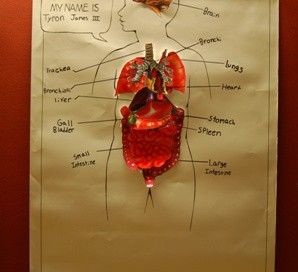 MY NAME IS
Tyron James III
Brain
Bronchi
Trachea
Lungs
Bronchioli
Heart
liver
Gall
Bladder
Stomach
Spleen
Small
Intestine
Large
Intestine